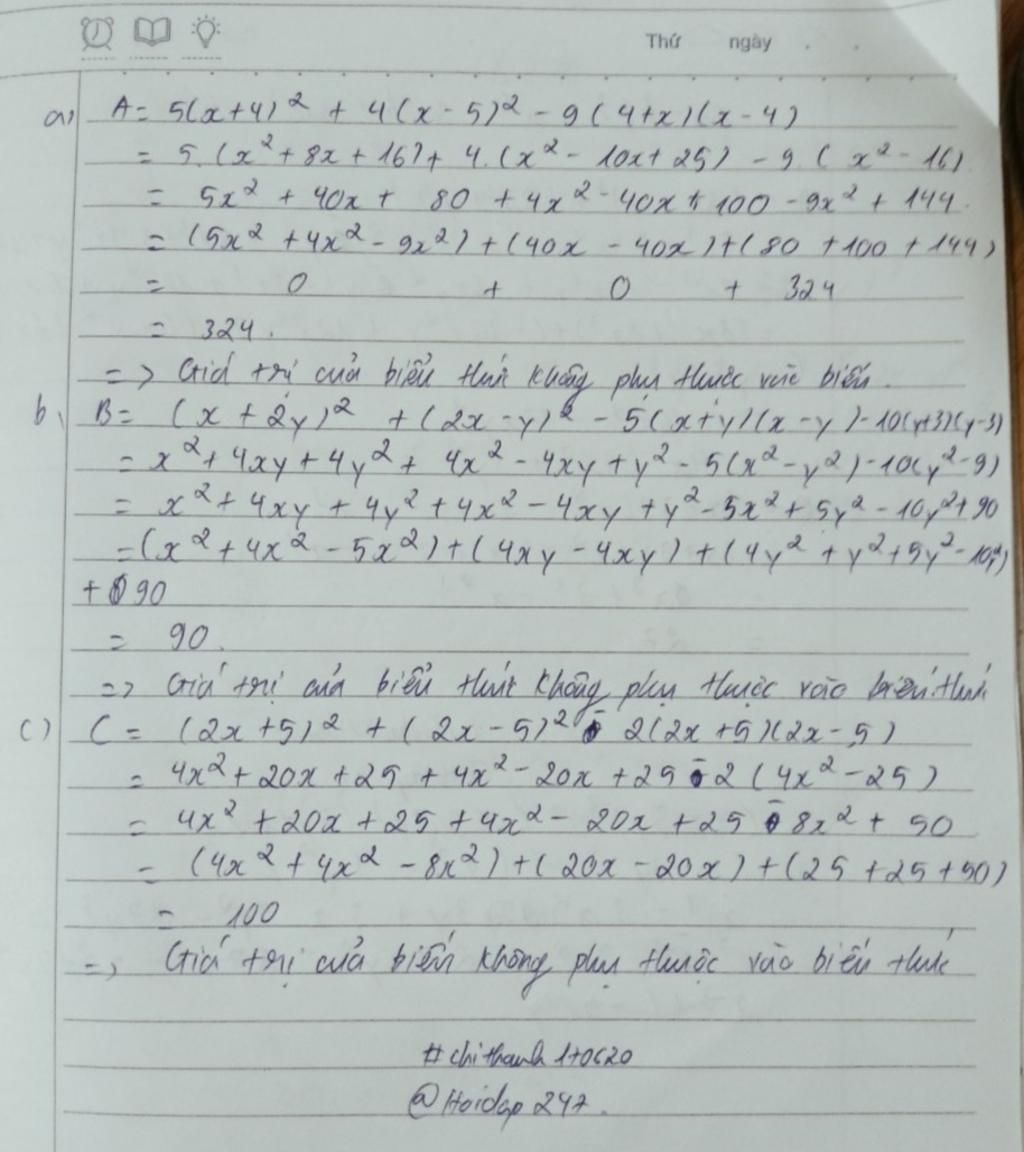 Thứ ngày . .
a) A = 5(x+4)² + 4(x-5)² - 9(4+x)(x-4)
= 5.(x² + 8x + 16) + 4.(x² - 10x + 25) - 9.(x² - 16)
= 5x² + 40x + 80 + 4x² - 40x + 100 - 9x² + 144
= (5x² + 4x² - 9x²) + (40x - 40x) + (80 + 100 + 144)
= 0 + 0 + 324
= 324.
=> Giá trị của biểu thức không phụ thuộc vào biến.
b, B = (x + 2y)² + (2x - y)² - 5(x+y)(x-y) - 10(y+3)(y-3)
= x² + 4xy + 4y² + 4x² - 4xy + y² - 5(x² - y²) - 10(y² - 9)
= x² + 4xy + 4y² + 4x² - 4xy + y² - 5x² + 5y² - 10y² + 90
= (x² + 4x² - 5x²) + (4xy - 4xy) + (4y² + y² + 5y² - 10y²)
+ 90
= 90.
=> Giá trị của biểu thức không phụ thuộc vào biến thức
c) C = (2x+5)² + (2x-5)² - 2(2x+5)(2x-5)
= 4x² + 20x + 25 + 4x² - 20x + 25 - 2(4x² - 25)
= 4x² + 20x + 25 + 4x² - 20x + 25 - 8x² + 50
= (4x² + 4x² - 8x²) + (20x - 20x) + (25 + 25 + 50)
= 100
=> Giá trị của biến không phụ thuộc vào biến thức
#chithanh170620
@Hoidap247.